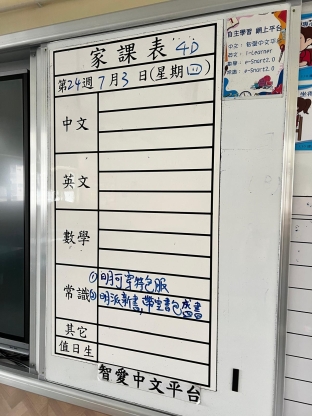 家課表 4D
第24週7月3日(星期四)
中文
英文
數學
常識
①明可穿特色服
②明派新書,帶空書包盛書
其它
值日生
智愛中文平台
自主學習 網上平台
中文: 智愛中文平台
英文: i-Learner
常識: e-Smart2.0